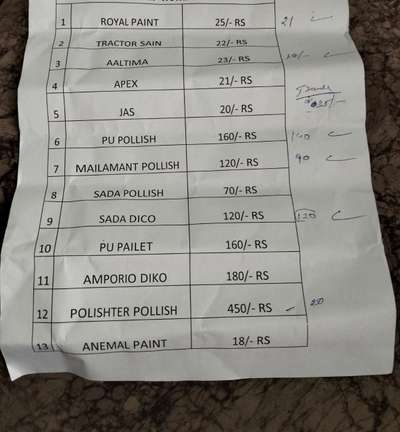 1 ROYAL PAINT 25/- RS 21
2 TRACTOR SAIN 22/- RS
3 AALTIMA 23/- RS
4 APEX 21/- RS
5 JAS 20/- RS
6 PU POLLISH 160/- RS 140
7 MAILAMANT POLLISH 120/- RS 90
8 SADA POLLISH 70/- RS
9 SADA DICO 120/- RS 120
10 PU PAILET 160/- RS
11 AMPORIO DIKO 180/- RS
12 POLISHTER POLLISH 450/- RS
13 ANEMAL PAINT 18/- RS